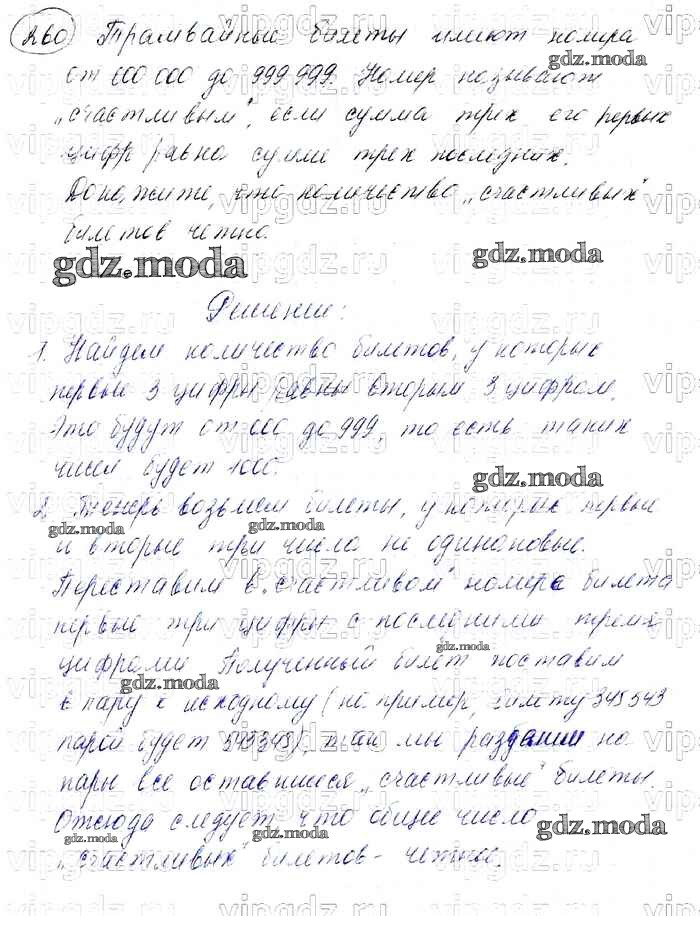 260 Трамвайные билеты имеют номера
от 000 000 до 999 999. Номер называют
„счастливым", если сумма трех его первых
цифр равна сумме трех последних.
Докажите, что количество „счастливых"
билетов четно.
Решение:
1. Найдем количество билетов, у которых
первые 3 цифры равны вторым 3 цифрам.
Это будут от 000 до 999, то есть таких
чисел будет 1000.
2. Теперь возьмем билеты, у которых первые
и вторые три числа не одинаковые.
Переставим в „счастливом" номере билета
первые три цифры с последними тремя
цифрами Полученный билет поставим
в пару к исходному (например, билету 345543
парой будет 543345), так мы разбили на
пары все оставшиеся „счастливые" билеты.
Отсюда следует что общее число
„счастливых" билетов - четное.
gdz.moda
vipgdz.ru